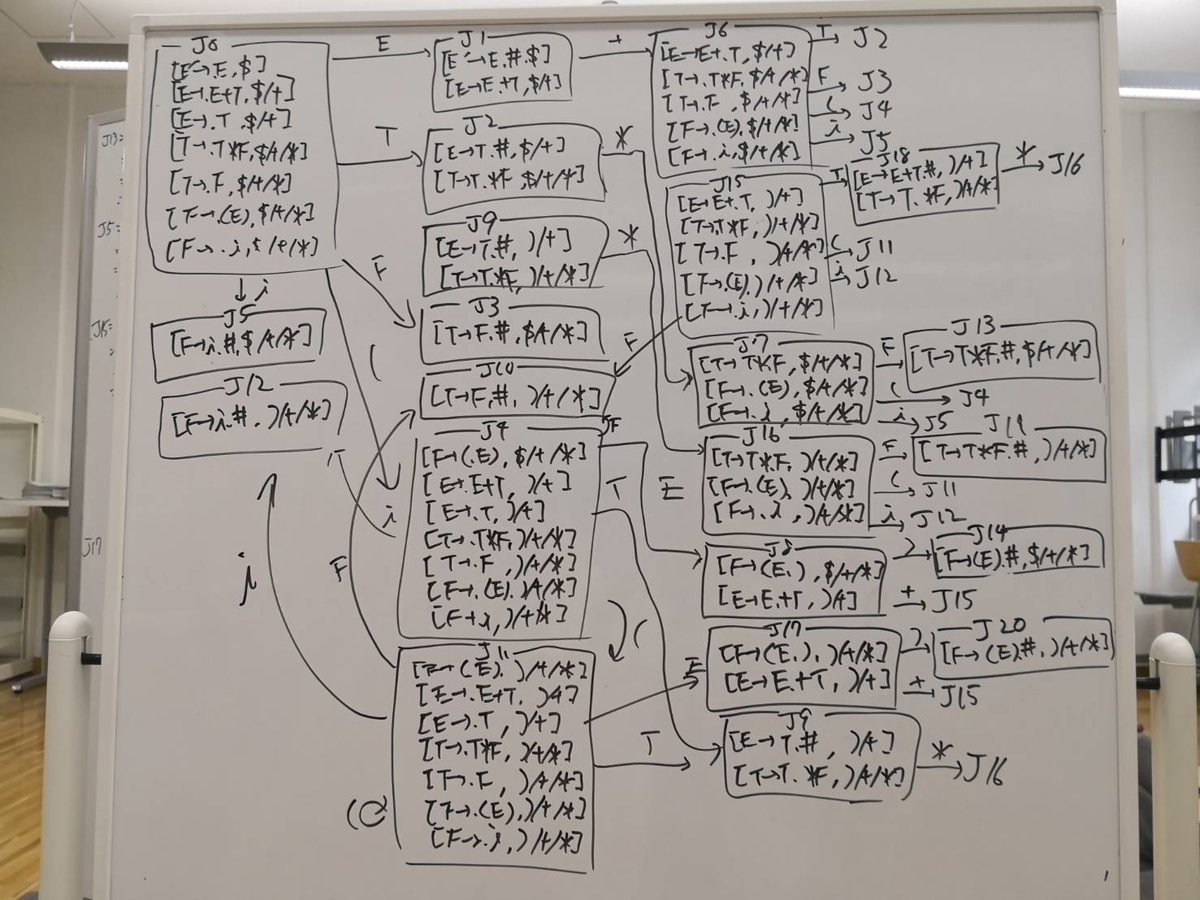 J0
[E'→.E,$]
[E→.E+T,$/+]
[E→.T,$/+]
[T→.T*F,$/+/*]
[T→.F,$/+/*]
[F→.(E),$/+/*]
[F→.i,$/+/*]
E
T
F
(
i
J5
[F→i.#,$/+/*]
J12
[F→i.#,)/+/*]
J1
[E'→E.#.$]
[E→E.+T,$/+]
+
J2
[E→T.#,$/+]
[T→T.*F,$/+/*]
*
J9
[E→T.#,)/+]
[T→T.*F,)/+/*]
*
J3
[T→F.#,$/+/*]
J10
[T→F.#,)/+/*]
J4
[F→(.E),$/+/*]
[E→.E+T,)/+]
[E→.T,)/+]
[T→.T*F,)/+/*]
[T→.F,)/+/*]
[F→.(E),)/+/*]
[F→.i,)/+/*]
F
T
E
i
(
J11
[F→(.E),)/+/*]
[E→.E+T,)/+]
[E→.T,)/+]
[T→.T*F,)/+/*]
[T→.F,)/+/*]
[F→.(E),)/+/*]
[F→.i,)/+/*]
i
F
E
T
(
J6
[E→E+.T,$/+]
[T→.T*F,$/+/*]
[T→.F,$/+/*]
[F→.(E),$/+/*]
[F→.i,$/+/*]
T J2
F J3
( J4
i J5
J15
[E→E+.T,)/+]
[T→.T*F,)/+/*]
[T→.F,)/+/*]
[F→.(E),)/+/*]
[F→.i,)/+/*]
T
F
( J11
i J12
J18
[E→E+T.#,)/+]
[T→T.*F,)/+/*]
* J16
J7
[T→T*.F,$/+/*]
[F→.(E),$/+/*]
[F→.i,$/+/*]
F
( J4
i J5
J13
[T→T*F.#,$/+/*]
J16
[T→T*.F,)/+/*]
[F→.(E),)/+/*]
[F→.i,)/+/*]
F
( J11
i J12
J19
[T→T*F.#,)/+/*]
J8
[F→(E.),$/+/*]
[E→E.+T,)/+]
)
+ J15
J14
[F→(E).#,$/+/*]
J17
[F→(E.),)/+/*]
[E→E.+T,)/+]
)
+ J15
J20
[F→(E).#,)/+/*]
J9
[E→T.#,)/+]
[T→T.*F,)/+/*]
* J16
J13=
J5=
J15=
J17